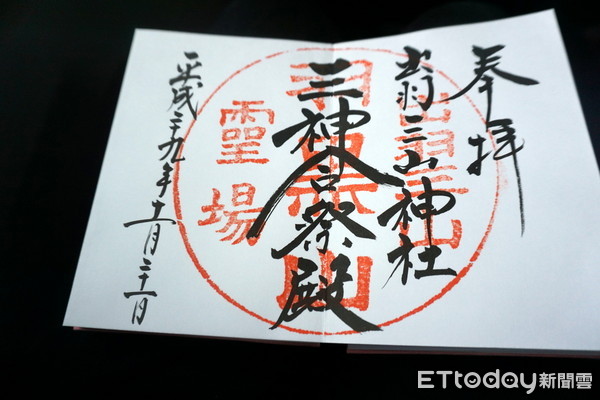 奉拝
出羽三山神社
三神合祭殿
平成二十九年十一月二十一日
出羽三山
羽黒山
靈場
ETtoday新聞雲